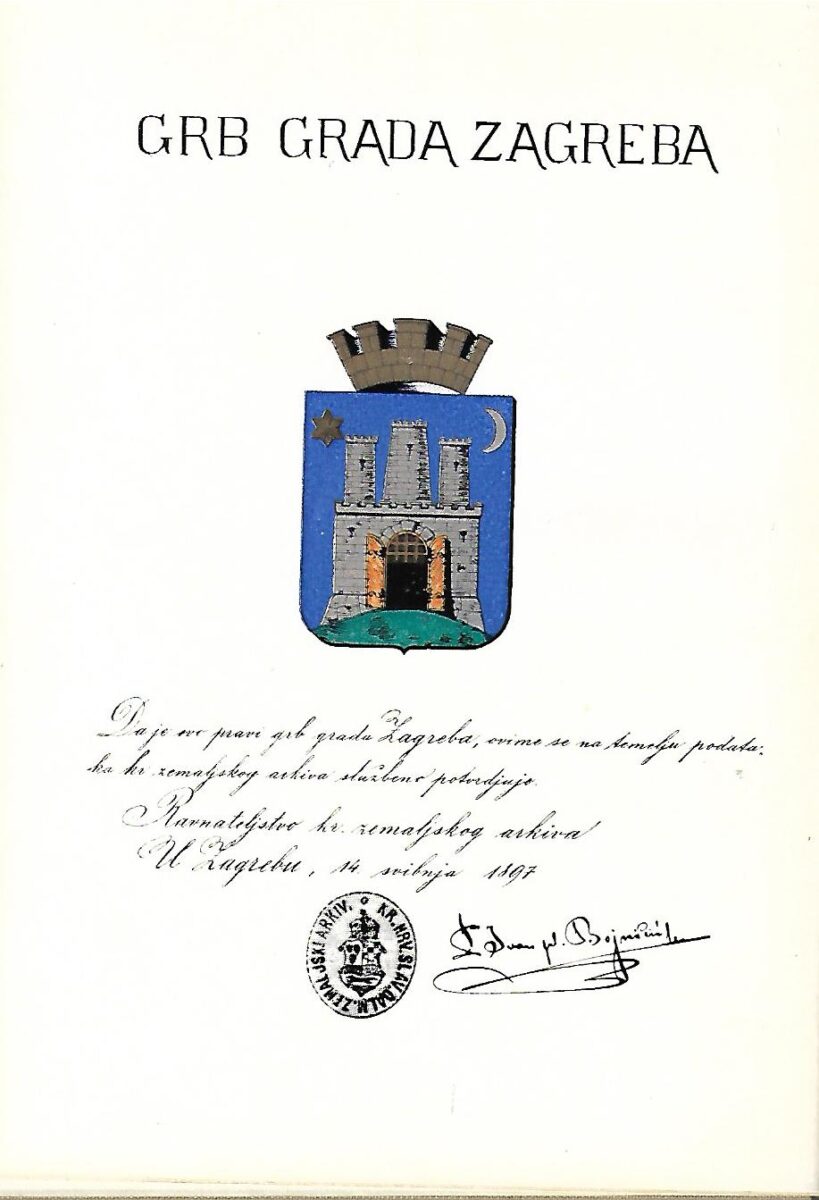 GRB GRADA ZAGREBA
Da je ovo pravi grb grada Zagreba, ovime se na temelju podata-
ka kr. zemaljskog arkiva službeno potvrdjuje.
Ravnateljstvo kr. zemaljskog arkiva
U Zagrebu, 14. svibnja 1897
KR. HRV. SLAV. DALM. ZEMALJSKI ARKIV.
Dr Ivan pl. Bojničić